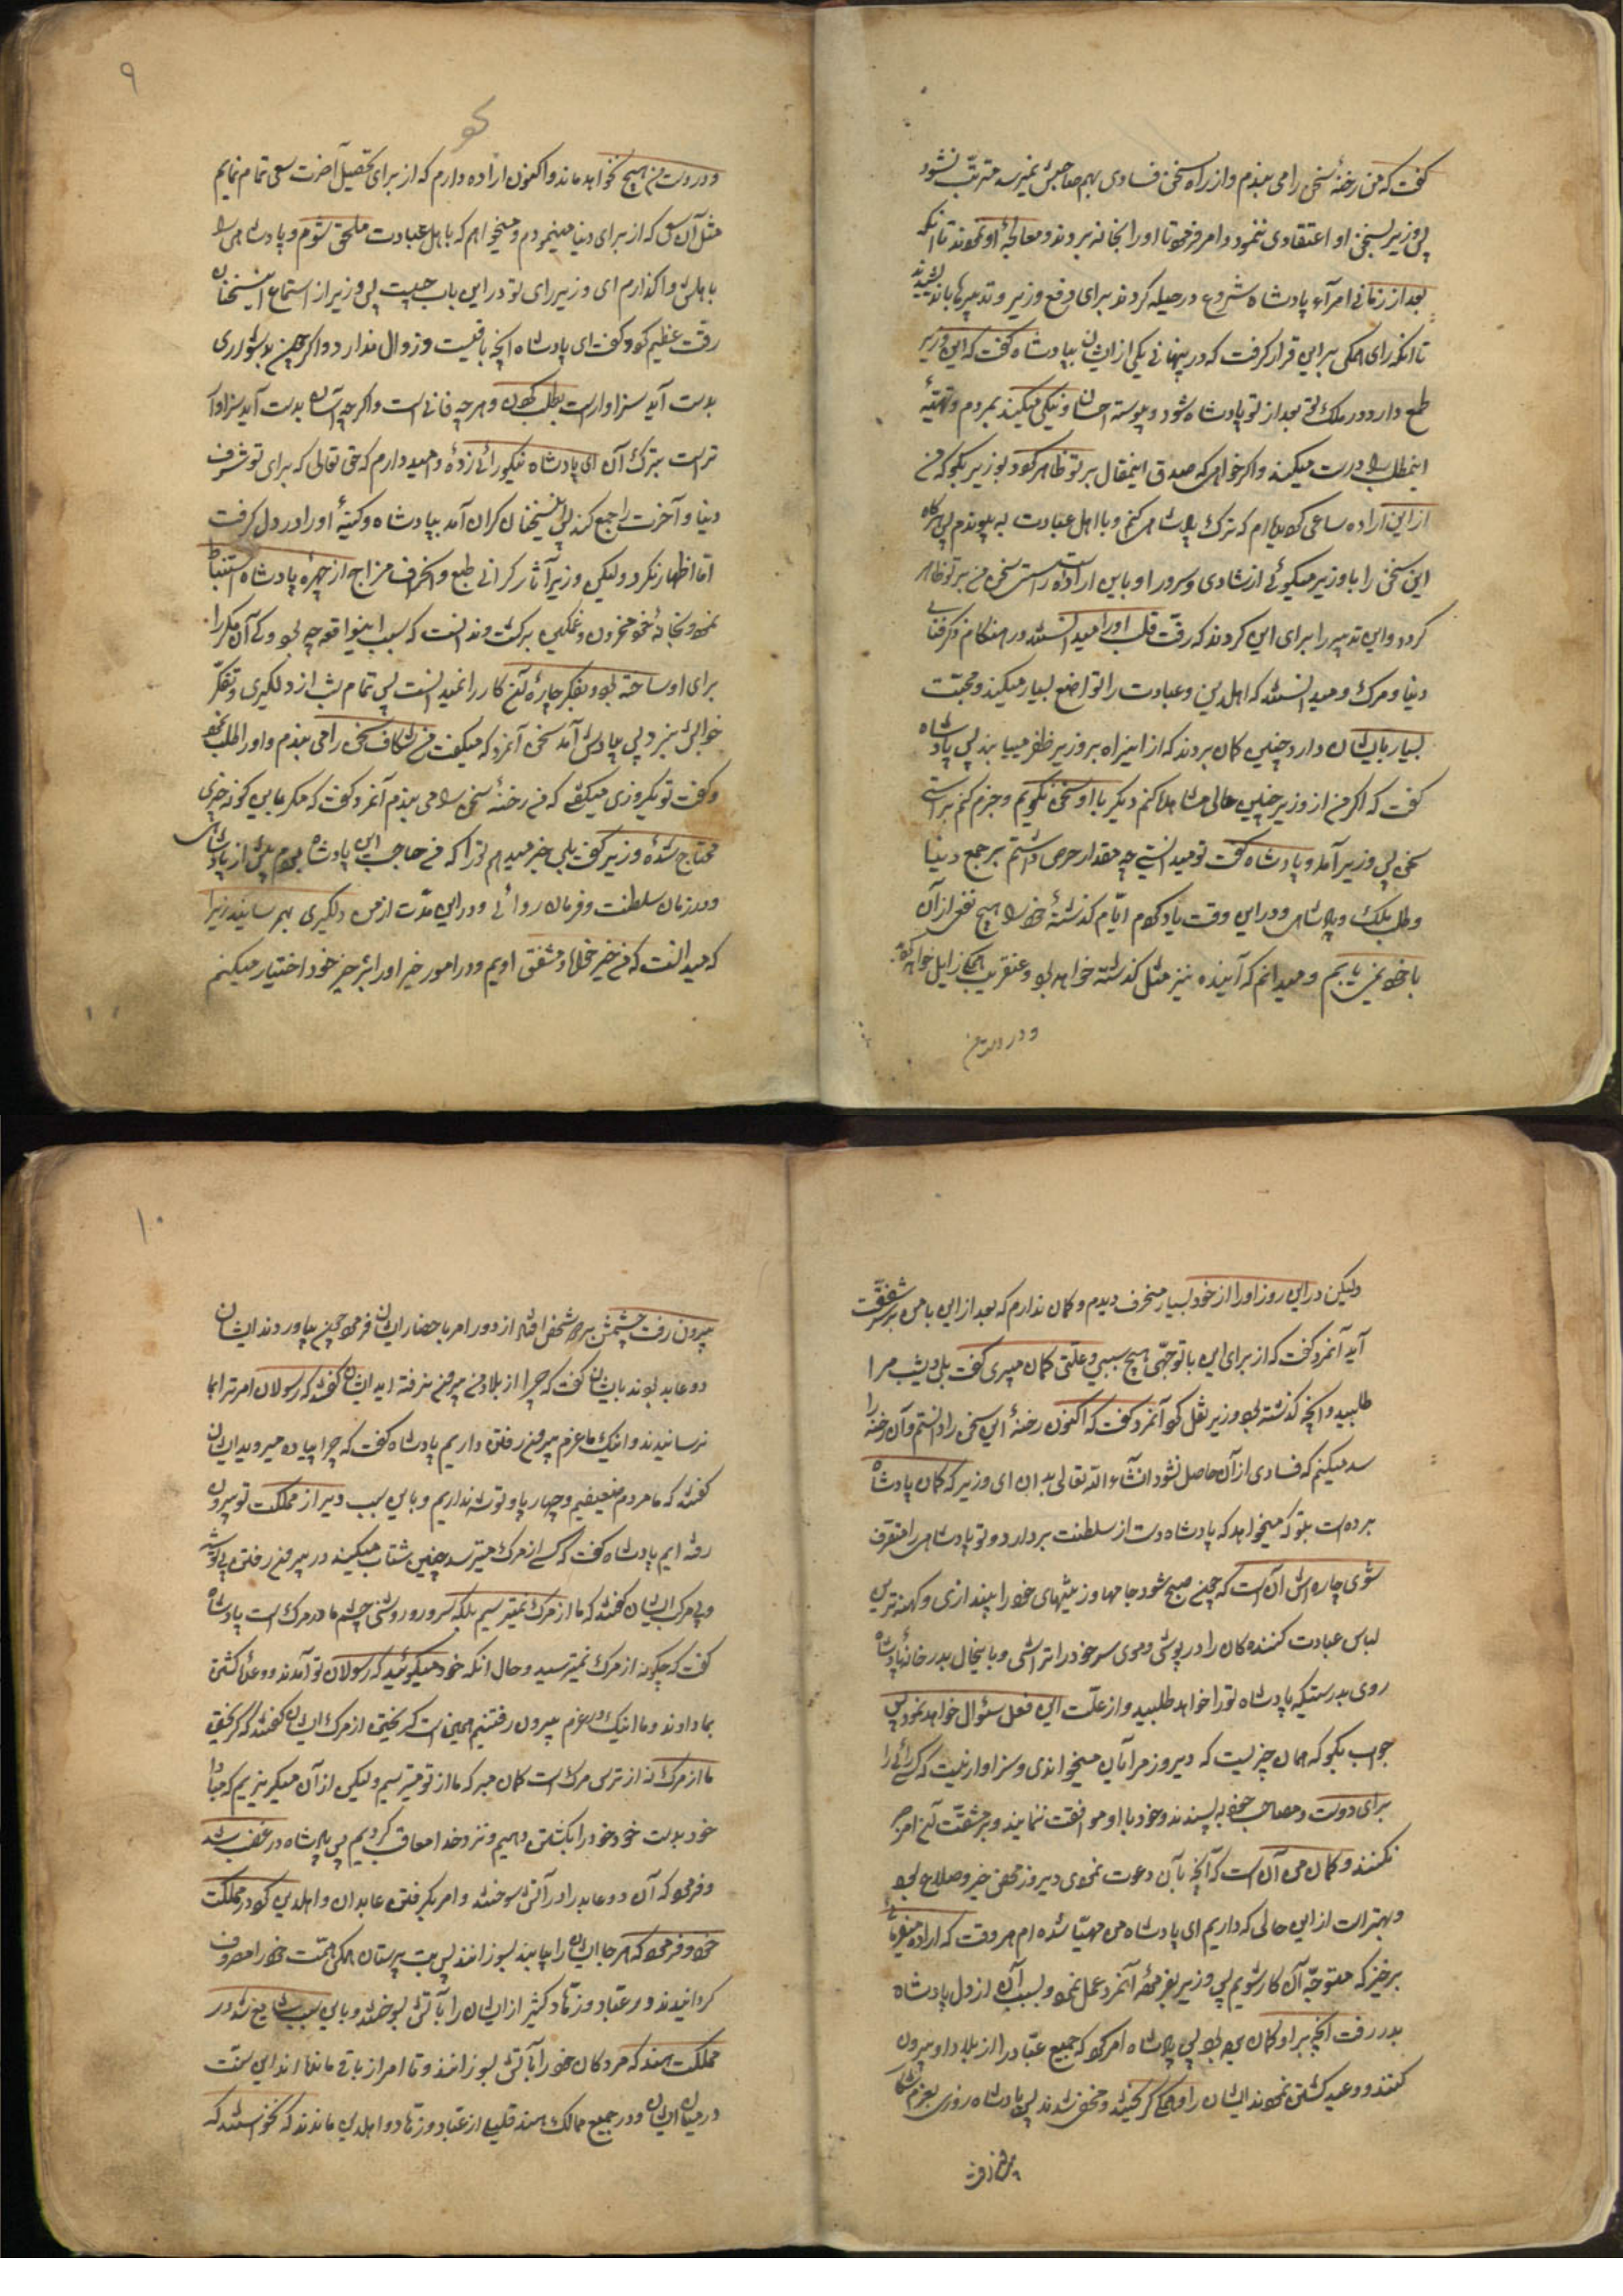 گفت که من رخنهٔ سخن را می بندم و از راه سخن فسادی بهم صاحبش نمیرسد مترتب نشود
پس وزیر بسخن او اعتقادی ننمود و امر فرمود تا او را بخانه بردند و معالجهٔ او نمودند تا آنکه
بعد از زمانی امرآء پادشاه شروع در حیله کردند برای دفع وزیر و تدبیرها باندیشیدند
تا آنکه رای همگی بر این قرار گرفت که در پنهانی یکی از ایشان بپادشاه گفت که این وزیر
طمع دارد در ملک تو که بعد از تو پادشاه شود و پیوسته احسان و نیکی میکند بمردم و تهیهٔ
اینمطلب را درست میکند و اگر خواهی که صدق اینمقال بر تو ظاهر گردد بوزیر بگو که من
از این اراده ساعی که دارم که ترک پادشاهی کنم و با اهل عبادت به پیوندم پس هرگاه
این سخن را با وزیر میگوئی از شادی و سرور او باین اراده راستی سخن من بر تو ظاهر
گردد و این تدبیر را برای این کردند که رقت قلب او را میدانستند در هنگام ذکر فنای
دنیا و مرگ و میدانستند که اهل دین و عبادت را تواضع بسیار میکند و محبت
بسیار بایشان دارد و چنین گمان بردند که از اینراه بر وزیر ظفر مییابند پس پادشاه
گفت که اگر من از وزیر چنین حالی مشاهده کنم دیگر با او سخن نگویم و جزم کنم براستی
سخن پس وزیر آمد و پادشاه گفت تو میدانستی چه مقدار حرص داشتم بر جمع دنیا
و طلب ملک و پادشاهی و در این وقت یاد کردم ایام گذشتهٔ خود را هیچ نفعی از آن
با خود نمی یابم و میدانم که آینده نیز مثل گذشته خواهد بود و عنقریب همگی زایل خواهد گردید
و در دست من
۹
و در دست من هیچ نخواهد ماند و اکنون اراده دارم که از برای تحصیل آخرت سعی تمام نمایم
مثل آن سعی که از برای دنیا مینمودم و میخواهم که باهل عبادت ملحق شوم و پادشاهی را
باهلش واگذارم ای وزیر رای تو در این باب چیست پس وزیر از استماع این سخنان
رقت عظیم کرد و گفت ای پادشاه آنچه باقیست و زوال ندارد و اگر چه بدشواری
بدست آید سزاوار است بطلب کردن و هر چه فانی است و اگر چه آسان بدست آید سزاوار
تر است بترک آن ای پادشاه نیکو رائی زدهٔ و امید دارم که حق تعالی که برای تو شرف
دنیا و آخرت را جمع کند پس این سخنان گران آمد بپادشاه و کینهٔ او را در دل گرفت
اما اظهار نکرد ولیکن وزیر آثار گرانی طبع و انحراف مزاج از چهرهٔ پادشاه استنباط
نمود و بخانهٔ خود محزون و غمگین برگشت و ندانست که سبب اینواقعه چه بود و کی آن مکر را
برای او ساخته بود و بفکر چارهٔ آن کار را نمیدانست پس تمام شب از دلگیری و تفکر
خوابش نبرد پس بیادش آمد سخن آنمرد که میگفت من شکاف سخن را می بندم و او را طلب نمود
و گفت تو یکروزی میگفتی که من رخنهٔ سخن را می بندم آنمرد گفت که مگر باین گونه چیزی
محتاج شدهٔ وزیر گفت بلی خبر میدهم ترا که من حاجب این پادشاه بودم پیش از پادشاهی
و در زمان سلطنت و فرمان روائی و در این مدت از من دلگیری بهم نرسانید زیرا
که میدانست که من خیر خواه و مشفق اویم و در امور خیر او را بر خیر خود اختیار میکنم
ولیکن در این روز او را از خود بسیار منحرف دیدم و گمان ندارم که بعد از این با من بر سر شفقت
آید آنمرد گفت که از برای این با تو جهتی هیچ سببی و علتی گمان میبری گفت بلی دیشب مرا
طلبید و آنچه گذشته بود وزیر نقل کرد آنمرد گفت که اکنون رخنهٔ این سخن را دانستم و آن رخنه را
سد میکنم که فسادی از آن حاصل نشود انشاء الله تعالی بدان ای وزیر که گمان پادشاه
برده است بتو که میخواهد که پادشاه دست از سلطنت بردارد و تو پادشاهی را متصرف
شوی چاره اش آن است که چون صبح شود جامها و زینتهای خود را بیندازی و کهنه ترین
لباس عبادت کننده گان را در پوشی و موی سر خود را تراشی و با اینحال بدر خانهٔ پادشاه
روی بدرستیکه پادشاه ترا خواهد طلبید و از علت این فعل سئوال خواهد نمود پس
جواب بگو که همان چیزیست که دیروز مرا بآن میخواندی و سزاوار نیست که کسی رائی را
برای دوست و مصاحب خود به پسندد و خود با او موافقت ننماید و بر مشقت آن امر صبر
نکند و گمان من آن است که آنچه بآن دعوت نمودی دیروز محض خیر و صلاح بود
و بهتر است از این حالی که داریم ای پادشاه من مهیا شده ام هر وقت که اراده میفرمائی
برخیز که متوجه آن کار شویم پس وزیر بفرمودهٔ آنمرد عمل نمود و بسبب آن از دل پادشاه
بدر رفت آنچه بر او گمان برده بود پس پادشاه امر کرد که جمیع عباد را از بلاد او بیرون
کنند و وعید کشتن نمودند ایشان را و همگی گریختند و مخفی شدند پس پادشاه روزی بعزم شکار
بیرون رفت
۱۰
بیرون رفت چشمش بر دو شخص افتاد از دور امر باحضار ایشان فرمود چون بیاوردند ایشان
دو عابد بودند بایشان گفت که چرا از بلاد من بیرون نرفته اید ایشان گفتند که رسولان امر ترا بما
نرسانیدند و اینک ما عزم بیرون رفتن داریم پادشاه گفت که چرا پیاده میروید ایشان
گفتند که ما مردم ضعیفیم و چهارپا و توشه نداریم و باین سبب دیر از مملکت تو بیرون
رفته ایم پادشاه گفت که کسی از مرگ میترسد چنین شتاب میکند در بیرون رفتن بی توشه
و بی مرکب ایشان گفتند که ما از مرگ نمیترسیم بلکه سرور و روشنی چشم ما در مرگ است پادشاه
گفت که چگونه از مرگ نمیترسید و حال آنکه خود میگوئید که رسولان تو آمدند و وعدهٔ کشتن
بما دادند و ما اینک در عزم بیرون رفتنیم همین است گریختن از مرگ ایشان گفتند که گریختن
ما از مرگ نه از ترس مرگ است گمان مبر که ما از تو میترسیم ولیکن از آن میگریزیم که مبادا
خود بدست خود خود را بکشتن دهیم و نزد خدا معاقب گردیم پس پادشاه در غضب شد
و فرمود که آن دو عابد را در آتش سوختند و امر بگرفتن عابدان و اهل دین کرد در مملکت
خود و فرمود که هر جا ایشان را بیابند بسوزانند پس بت پرستان همگی همت خود را مصروف
گردانیدند و در عباد و زهاد کثیر از ایشان را بآتش بسوختند و باین سبب شایع شد در
مملکت هند که مردگان خود را بآتش بسوزانند و تا امروز باقی مانده اند این سنت
در میان ایشان و در جمیع ممالک هند قلیلی از عباد و زهاد و اهل دین ماندند که نخواستند که